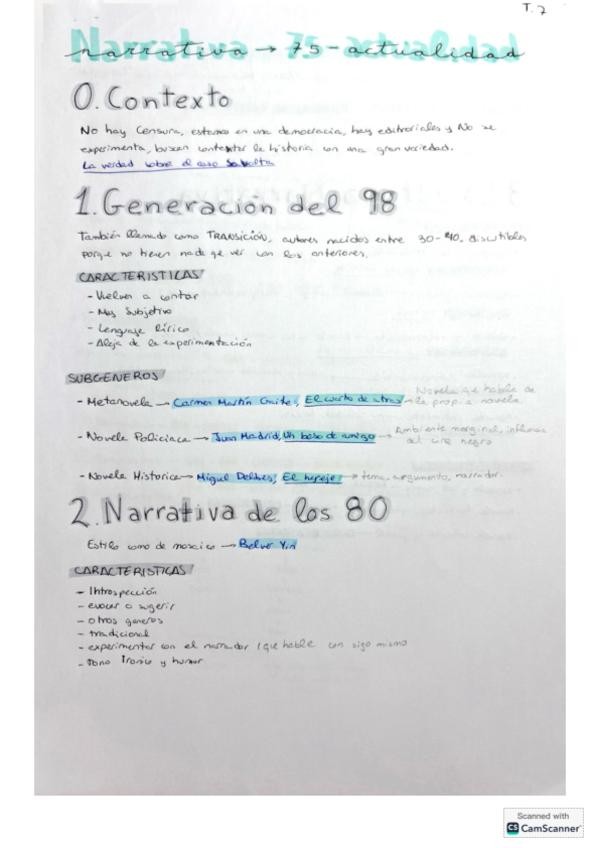 T. 7
Narrativa → 75-actualidad
0. Contexto
No hay censura, estamos en una democracia, hay editoriales y No se
experimenta, buscan contextar la historia con una gran variedad.
La verdad sobre el caso Savolta
1. Generación del 98
También llamado como TRANSICIÓN, autores nacidos entre 30-40, discutibles
porque no tienen nada q ver con los anteriores.
CARACTERISTICAS
- Vuelven a contar
- Mas Subjetivo
- Lenguaje lírico
- Aleja de la experimentación
SUBGENEROS
- Metanovela → Carmen Martín Gaite, El cuarto de atras → Novela que habla de
la propia novela.
- Novela Policiaca → Juan Madrid, Un beso de amigo → Ambiente marginal, influencia
del cine negro
- Novela Historica → Miguel Delibes, El hereje → tema, argumento, narrador.
2. Narrativa de los 80
Estilo como de mosaico → Belver Yin
CARACTERISTICAS
- Introspección
- evocar o sugerir
- otros generos
- tradicional
- experimentar con el narrador (que hable con sigo mismo
- Tono Ironico y humor
Scanned with
CS CamScanner